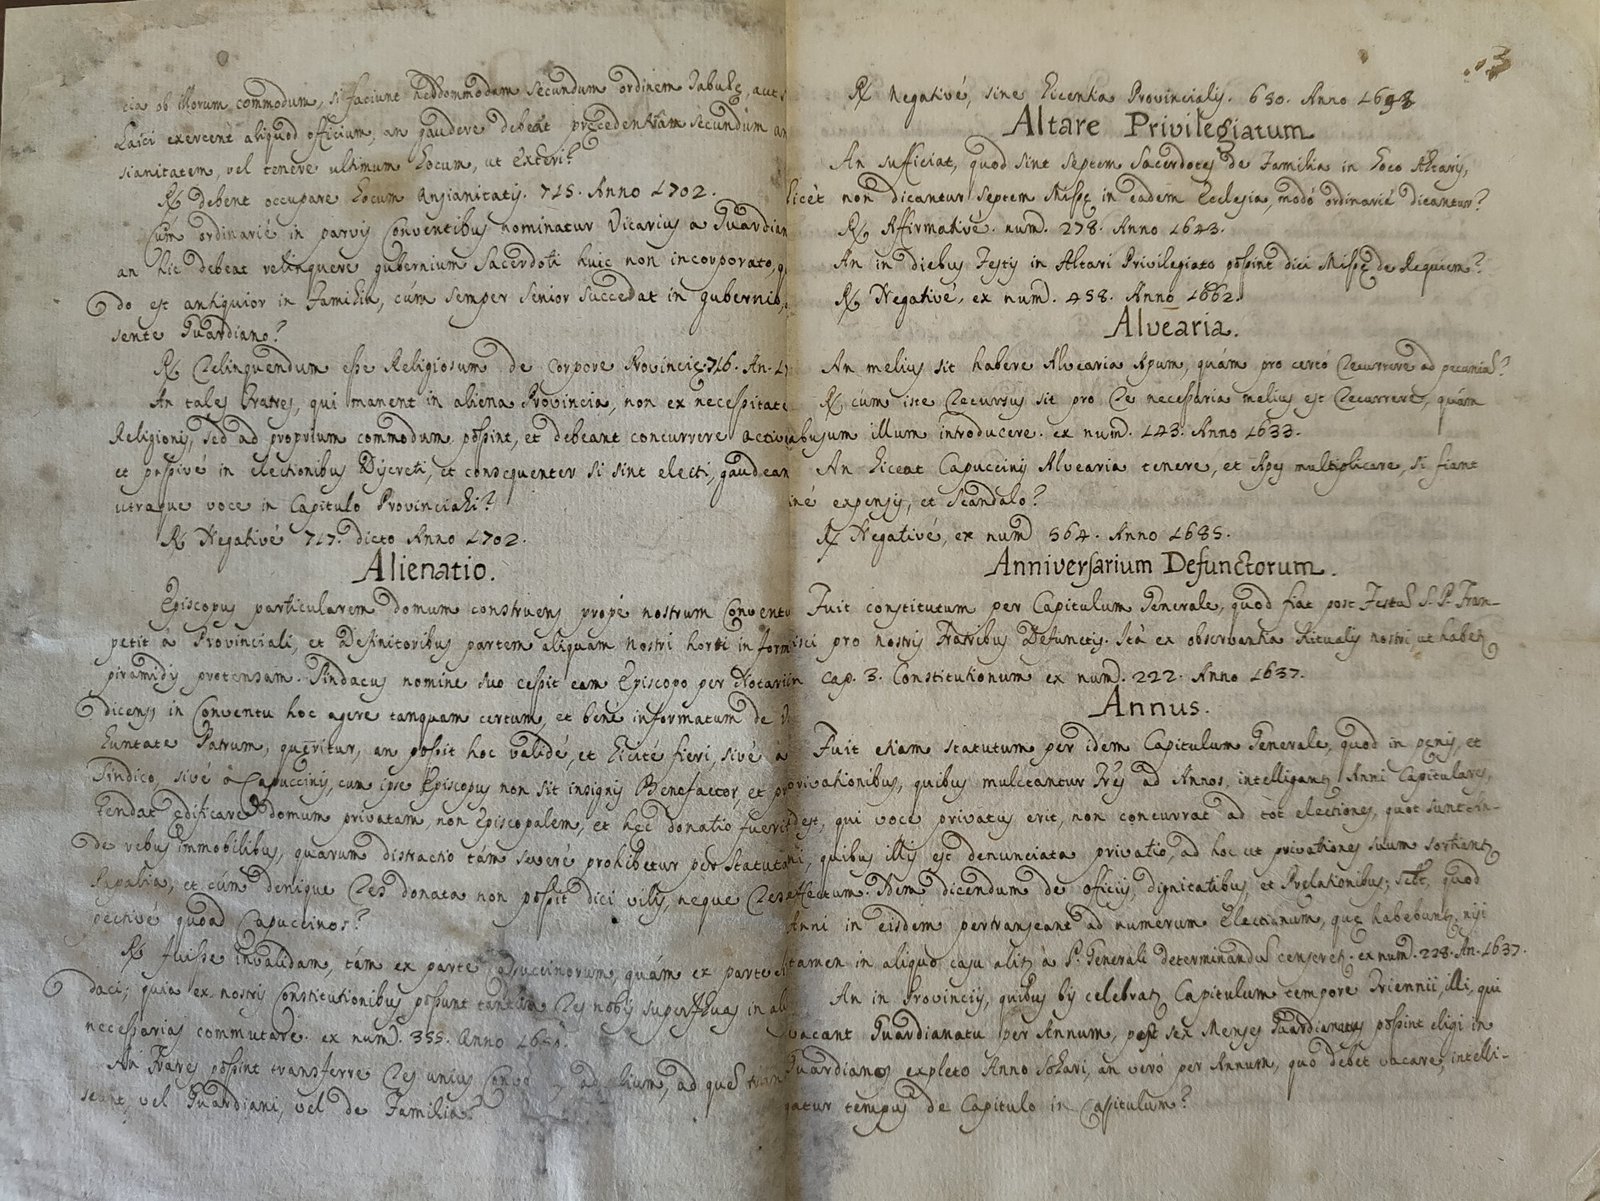 cia ob illorum commodum, si faciunt hebdommodam secundum ordinem Tabulę, aut
Laici exercent aliquod officium, an gaudere debeāt precedentiam secundúm an
sianitatem, vel tenere ultimum Locum, ut Exteri?
R. debent occupare Locum Ansianitatis. 715. Anno 1702.
Cúm ordinarié in parvis Conventibus nominatur Vicarius a Guardian
an hic debeat relinquere gubernium Sacerdoti huic non incorporato,
do est antiquior in Familia, cúm semper senior succedat in gubernio,
sente Guardiano?
R. Relinquendum esse Religiosum de corpore Provincię. 716. An.
An tales Fratres, qui manent in aliena Provincia, non ex necessitate
Religionis, sed ad proprium commodum possint, et debeant concurrere activé
et passivé in electionibus Discreti, et consequenter si sint electi, gaudean
utraque voce in Capitulo Provinciali?
R. Negativé 717. dicto Anno 1702.
Alienatio.
Episcopus particularem domum construens propé nostrum Conventu
petit a Provinciali, et Definitoribus partem aliquam nostri horti in form
piramidis protensam. Sindacus nomine suo cessit eam Episcopo per Notariū
dicens in Conventu hoc agere tanquam certum, et bené informatum de Vo
luntate Patrum, quęritur, an possit hoc validé, et Licité fieri, sivé à
Sindico, sivé à Capuccinis, cum ipse Episcopus non sit insignis Benefactor, et
tendat edificare domum privatam, non Episcopalem, et hęc donatio fuerit
de rebus immobilibus, quarum distractio tám severé prohibetur per Statuta
Papalia, et cúm denique Res donata non possit dici vilis, neque Res
pectivé quoad Capuccinos?
R. fuisse invalidam, tám ex parte Capuccinorum, quám ex parte
daci; quia ex nostris Constitutionibus possunt tantúm Res nobis superfluas in
necessarias commutare. ex num. 355. Anno
An Fratres possint transferre Res unius ad alium, ad quē
seant, vel Guardiani, vel de Familia?
3
R. Negativé, sine Licentia Provincialis. 680. Anno
Altare Privilegiatum
An sufficiat, quod sint septem Sacerdotes de Familia in Loco Altaris,
licét non dicantur septem Missę in eadem Ecclesia, modó ordinarié dicantur?
R. Affirmativé. num. 278. Anno 1643.
An in diebus Festis in Altari Privilegiato possint dici Missę de Requiem?
R. Negativé. ex num. 458. Anno 1662.
Alvearia.
An melius sit habere Alvearia Apum, quám pro certó recurrere ad pecuniā?
R. cum iste Recursus sit pro Re necessaria melius est Recurrere, quám
abusum illum introducere. ex num. 143. Anno 1633.
An liceat Capuccinis Alvearia tenere, et Apes multiplicare, si fiant
siné expensis, et Scandalo?
R. Negativé, ex num 564. Anno 1685.
Anniversarium Defunctorum.
Fuit constitutum per Capitulum Generale, quod fiat post Festū S. P. Fran-
cisci pro nostris Fratribus Defunctis. Ità ex observantia Ritualis nostri, ut habet
in Cap. 3. Constitutionum ex num. 222. Anno 1637.
Annus.
Fuit etiam statutum per idem Capitulum Generale, quod in pęnis, et
privationibus, quibus mulctantur Frēs ad Annos, intelligant Anni Capitulares,
idest, qui voce privatus erit, non concurrat ad tót electiones, quot sunt An-
ni, quibus illis est denunciata privatio, ad hoc ut privationes suum sortiant
effectum. Idem dicendum de officiis, dignitatibus, et Prelationibus; quod
Anni in eisdem pertranseant ad numerum Electionum, quę habebunt nisi
tamen in aliquo casu à P. Generali determinandū censeret. ex num. 228. An. 1637.
An in Provinciis, quibus bis celebrat Capitulum tempore Triennii, illi, qui
vacant Guardianatu per Annum, post sex Menses Guardianatus possint eligi in
Guardianos expleto Anno Solari, an veró per Annum, quo debet vacare, intelli-
gatur tempus de Capitulo in Capitulum?